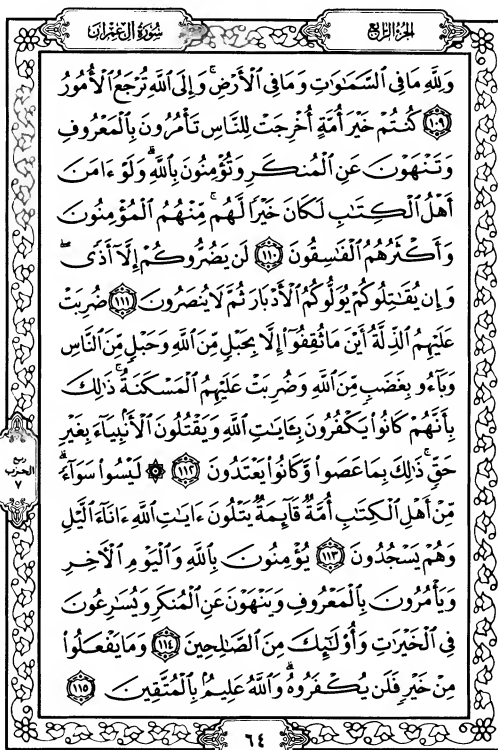 سُورَةُ آلِ عِمْرَان
الجُزْءُ الرَّابِعُ
وَلِلَّهِ مَا فِي ٱلسَّمَٰوَٰتِ وَمَا فِي ٱلْأَرْضِ ۚ وَإِلَى ٱللَّهِ تُرْجَعُ ٱلْأُمُورُ
١٠٩ كُنتُمْ خَيْرَ أُمَّةٍ أُخْرِجَتْ لِلنَّاسِ تَأْمُرُونَ بِٱلْمَعْرُوفِ
وَتَنْهَوْنَ عَنِ ٱلْمُنكَرِ وَتُؤْمِنُونَ بِٱللَّهِ ۗ وَلَوْ ءَامَنَ
أَهْلُ ٱلْكِتَٰبِ لَكَانَ خَيْرًا لَّهُم ۚ مِّنْهُمُ ٱلْمُؤْمِنُونَ
وَأَكْثَرُهُمُ ٱلْفَٰسِقُونَ ١١٠ لَن يَضُرُّوكُمْ إِلَّآ أَذًى ۖ
وَإِن يُقَٰتِلُوكُمْ يُوَلُّوكُمُ ٱلْأَدْبَارَ ثُمَّ لَا يُنصَرُونَ ١١١ ضُرِبَتْ
عَلَيْهِمُ ٱلذِّلَّةُ أَيْنَ مَا ثُقِفُوٓا۟ إِلَّا بِحَبْلٍ مِّنَ ٱللَّهِ وَحَبْلٍ مِّنَ ٱلنَّاسِ
وَبَآءُو بِغَضَبٍ مِّنَ ٱللَّهِ وَضُرِبَتْ عَلَيْهِمُ ٱلْمَسْكَنَةُ ۚ ذَٰلِكَ
بِأَنَّهُمْ كَانُوا۟ يَكْفُرُونَ بِـَٔايَٰتِ ٱللَّهِ وَيَقْتُلُونَ ٱلْأَنۢبِيَآءَ بِغَيْرِ
حَقٍّ ۚ ذَٰلِكَ بِمَا عَصَوا۟ وَّكَانُوا۟ يَعْتَدُونَ ١١٢ ۞ لَيْسُوا۟ سَوَآءً ۗ
مِّنْ أَهْلِ ٱلْكِتَٰبِ أُمَّةٌ قَآئِمَةٌ يَتْلُونَ ءَايَٰتِ ٱللَّهِ ءَانَآءَ ٱلَّيْلِ
وَهُمْ يَسْجُدُونَ ١١٣ يُؤْمِنُونَ بِٱللَّهِ وَٱلْيَوْمِ ٱلْءَاخِرِ
وَيَأْمُرُونَ بِٱلْمَعْرُوفِ وَيَنْهَوْنَ عَنِ ٱلْمُنكَرِ وَيُسَٰرِعُونَ
فِي ٱلْخَيْرَٰتِ وَأُو۟لَٰٓئِكَ مِنَ ٱلصَّٰلِحِينَ ١١٤ وَمَا يَفْعَلُوا۟
مِنْ خَيْرٍ فَلَن يُكْفَرُوهُ ۗ وَٱللَّهُ عَلِيمٌۢ بِٱلْمُتَّقِينَ ١١٥
ربع
الحزب
٧
٦٤